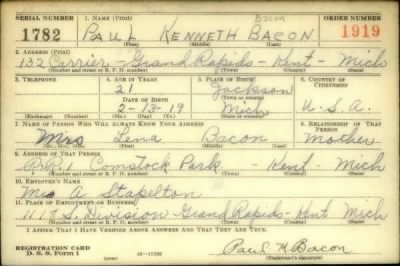 SERIAL NUMBER 1. NAME (Print) ORDER NUMBER
Bacon
1782 PAUL KENNETH BACON 1919
(First) (Middle) (Last)
2. ADDRESS (Print)
132 Carrier - Grand Rapids - Kent - Mich
(Number and street or R. F. D. number) (Town) (County) (State)
3. TELEPHONE 4. AGE IN YEARS 5. PLACE OF BIRTH 6. COUNTRY OF CITIZENSHIP
21 Jackson
DATE OF BIRTH (Town or county)
2-13-19 Mich U.S.A.
(Exchange) (Number) (Mo.) (Day) (Yr.) (State or country)
7. NAME OF PERSON WHO WILL ALWAYS KNOW YOUR ADDRESS 8. RELATIONSHIP OF THAT PERSON
Mrs Lena Bacon Mother
(Mr., Mrs., Miss) (First) (Middle) (Last)
9. ADDRESS OF THAT PERSON
Comstock Park - Kent - Mich
(Number and street or R. F. D. number) (Town) (County) (State)
10. EMPLOYER'S NAME
A Stapelton
11. PLACE OF EMPLOYMENT OR BUSINESS
S. Division - Grand Rapids - Kent Mich
(Number and street or R. F. D. number) (Town) (County) (State)
I AFFIRM THAT I HAVE VERIFIED ABOVE ANSWERS AND THAT THEY ARE TRUE.
REGISTRATION CARD
D. S. S. Form 1 16-17105 Paul K Bacon